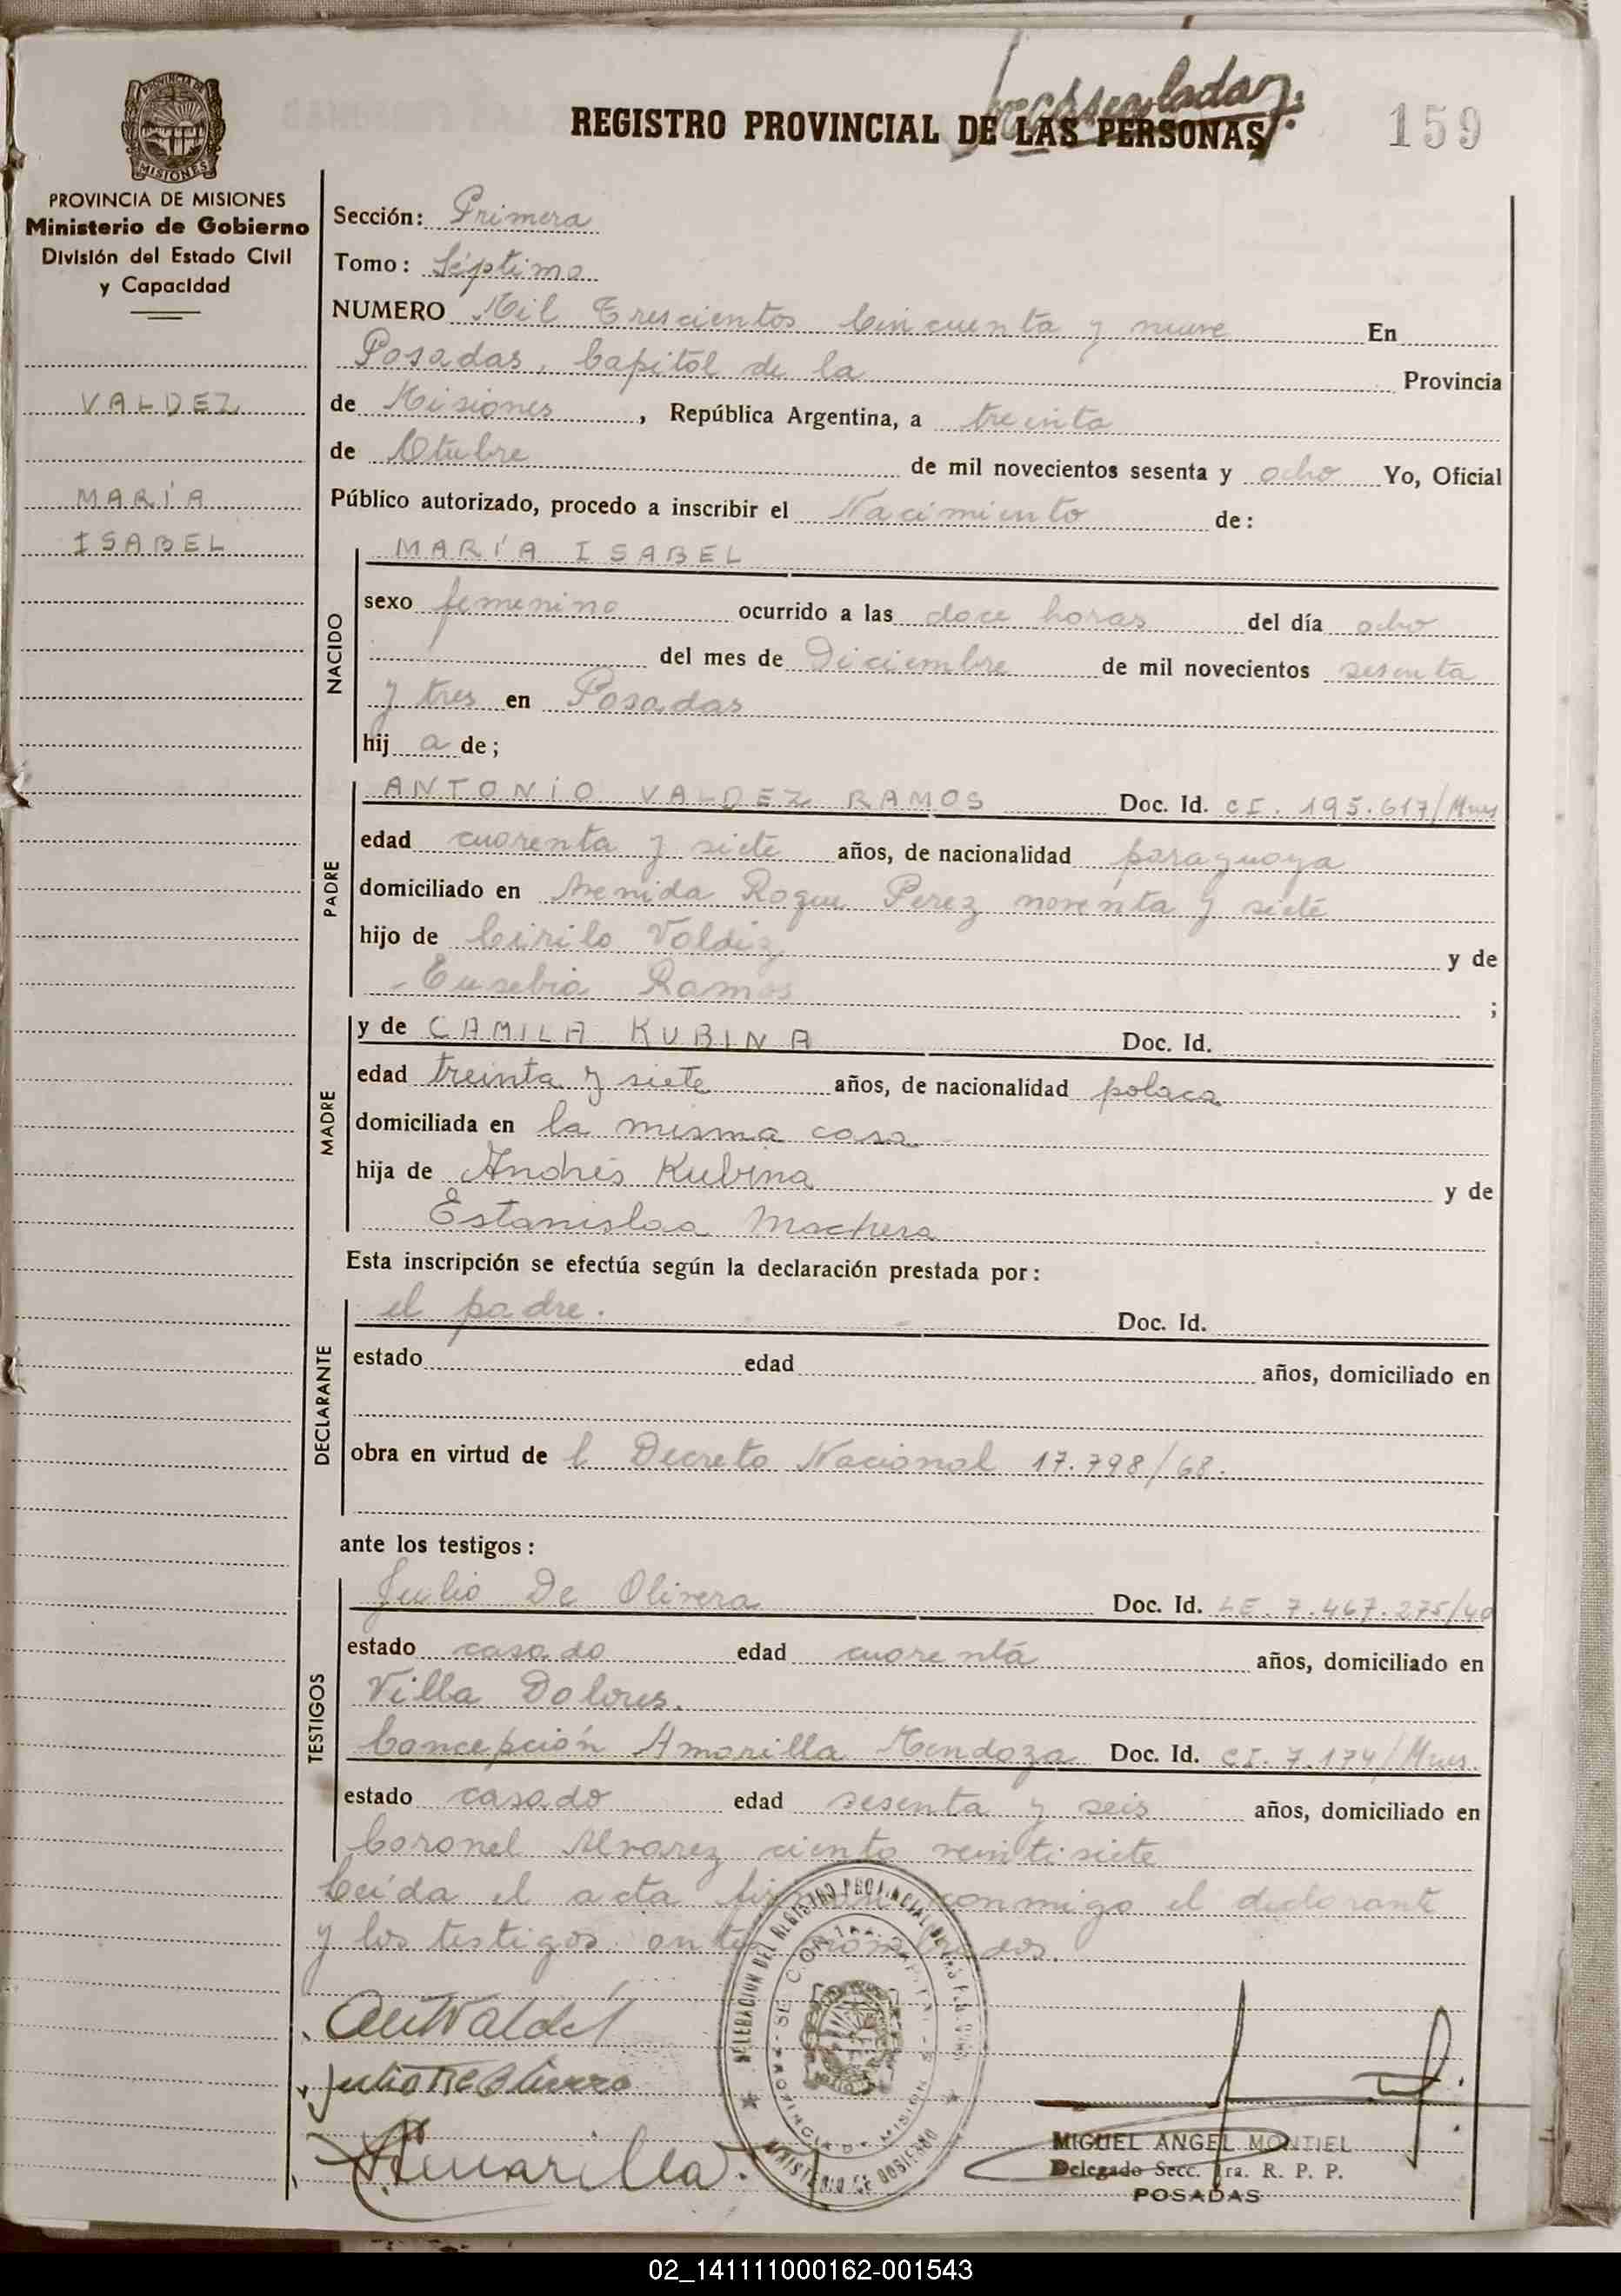 REGISTRO PROVINCIAL DE LAS PERSONAS
159
PROVINCIA DE MISIONES
Ministerio de Gobierno
División del Estado Civil
y Capacidad
VALDEZ
MARÍA
ISABEL
Sección: Primera
Tomo: Séptimo
NUMERO Mil Trescientos Cincuenta y nueve En
Posadas, Capital de la Provincia
de Misiones, República Argentina, a treinta
de Otubre de mil novecientos sesenta y ocho Yo, Oficial
Público autorizado, procedo a inscribir el Nacimiento de:
NACIDO
MARÍA ISABEL
sexo femenino ocurrido a las doce horas del día ocho
del mes de Diciembre de mil novecientos sesenta
y tres en Posadas
hij a de;
PADRE
ANTONIO VALDEZ RAMOS Doc. Id. CI. 195.617/Mnes
edad cuarenta y siete años, de nacionalidad paraguaya
domiciliado en Avenida Roque Perez noventa y siete
hijo de Cirilo Valdéz y de
Eusebia Ramos ;
MADRE
y de CAMILA KUBINA Doc. Id.
edad treinta y siete años, de nacionalidad polaca
domiciliada en la misma casa
hija de Andrés Kubina y de
Estanislaa Mochera
Esta inscripción se efectúa según la declaración prestada por:
DECLARANTE
el padre. Doc. Id.
estado edad años, domiciliado en
obra en virtud de l Decreto Nacional 17.798/68.
ante los testigos:
TESTIGOS
Julio De Olivera Doc. Id. LE. 7.467.275/40
estado casado edad cuarenta años, domiciliado en
Villa Dolores.
Concepción Amarilla Mendoza Doc. Id. CI. 7.174/Mnes.
estado casado edad sesenta y seis años, domiciliado en
Coronel Alvarez ciento veintisiete
Leída el acta firman conmigo el declarante
y los testigos antes nombrados.
Julio De Olivera
Amarilla.
DELEGACION DEL REGISTRO PROVINCIAL DE LAS
MINISTERIO DE GOBIERNO
MIGUEL ANGEL MONTIEL
Delegado Secc. 1ra. R. P. P.
POSADAS
02_141111000162-001543